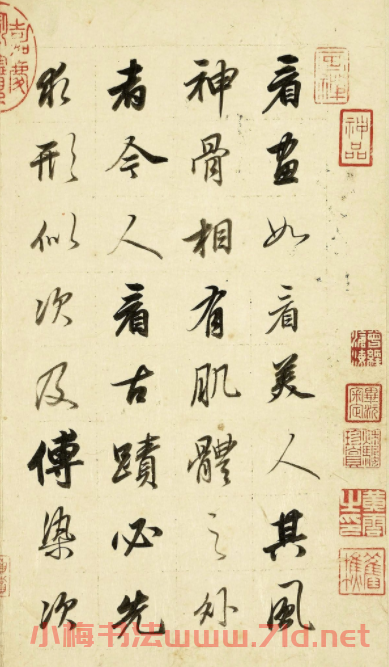 看畫如看美人其風
神骨相有肌體之外
者今人看古蹟必先
求形似次及傅染次
神品
小梅书法www.71d.net